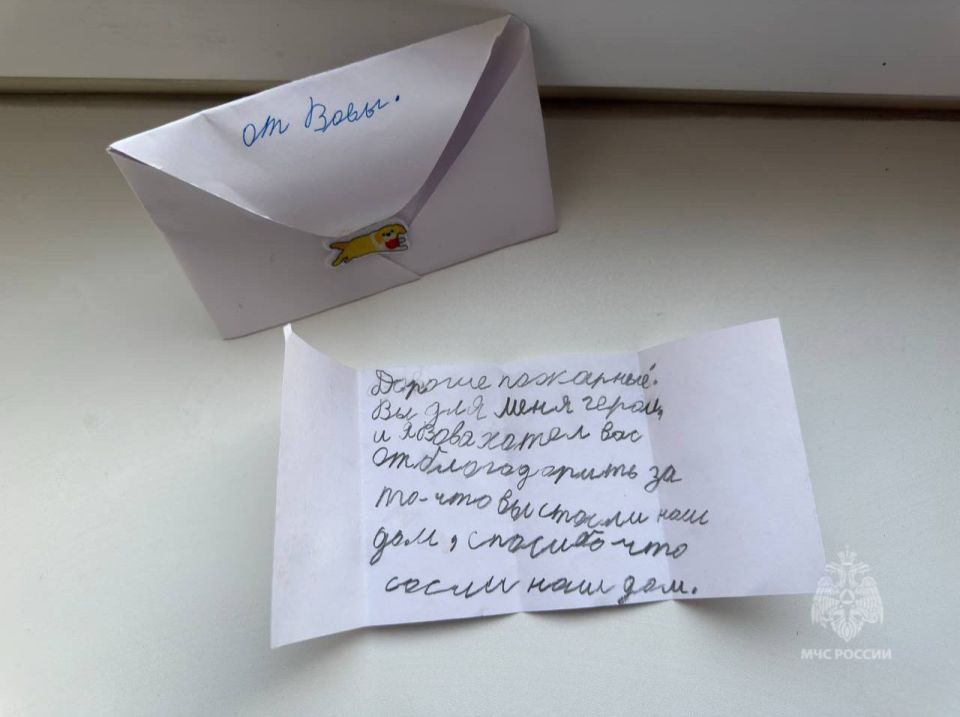 от Вовы.
Дорогие пожарные.
Вы для меня герои,
и я Вова хотел вас
отблогодарить за
то-что вы спасли наш
дом, спасибо что
сосли наш дом.
МЧС РОССИИ